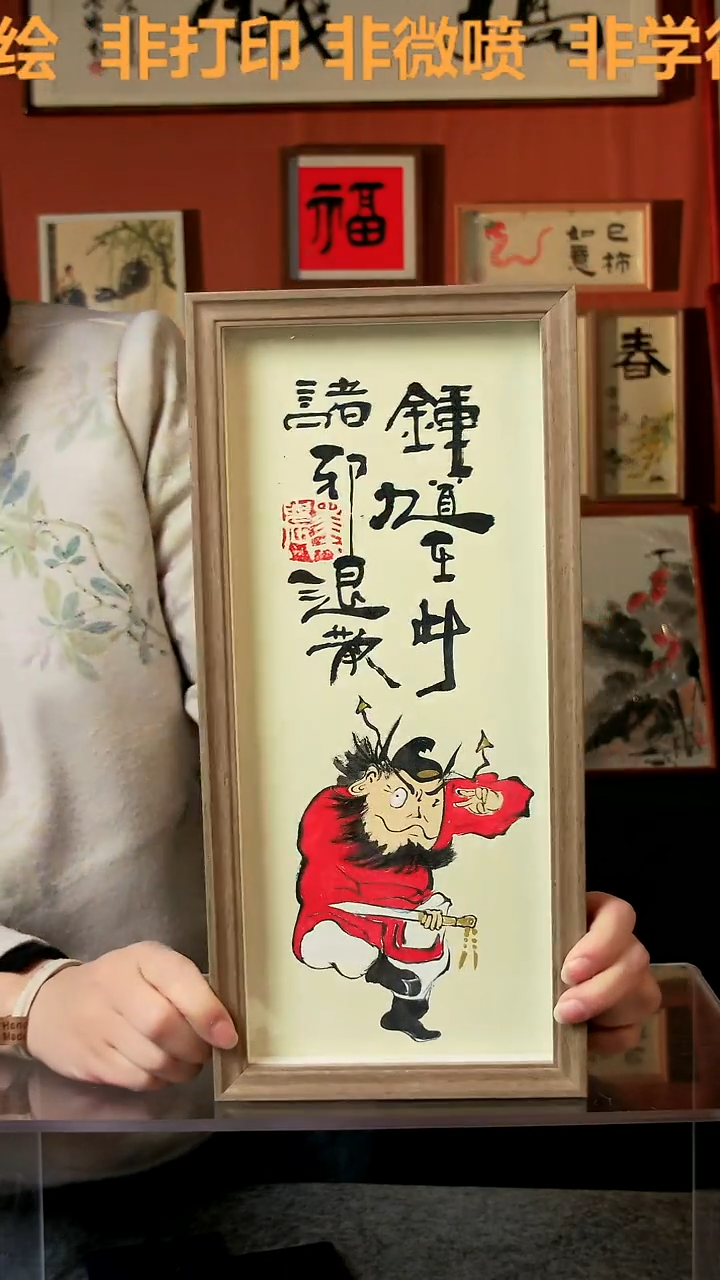 绘 非打印 非微喷 非学
福
如意
巳柿
春
鍾馗在此
諸邪退散
Hand
Made